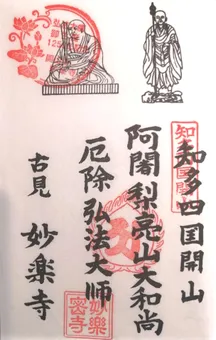 知多四国開山
阿闍梨亮山大和尚
厄除 弘法大師
古見 妙楽寺
妙樂
密寺